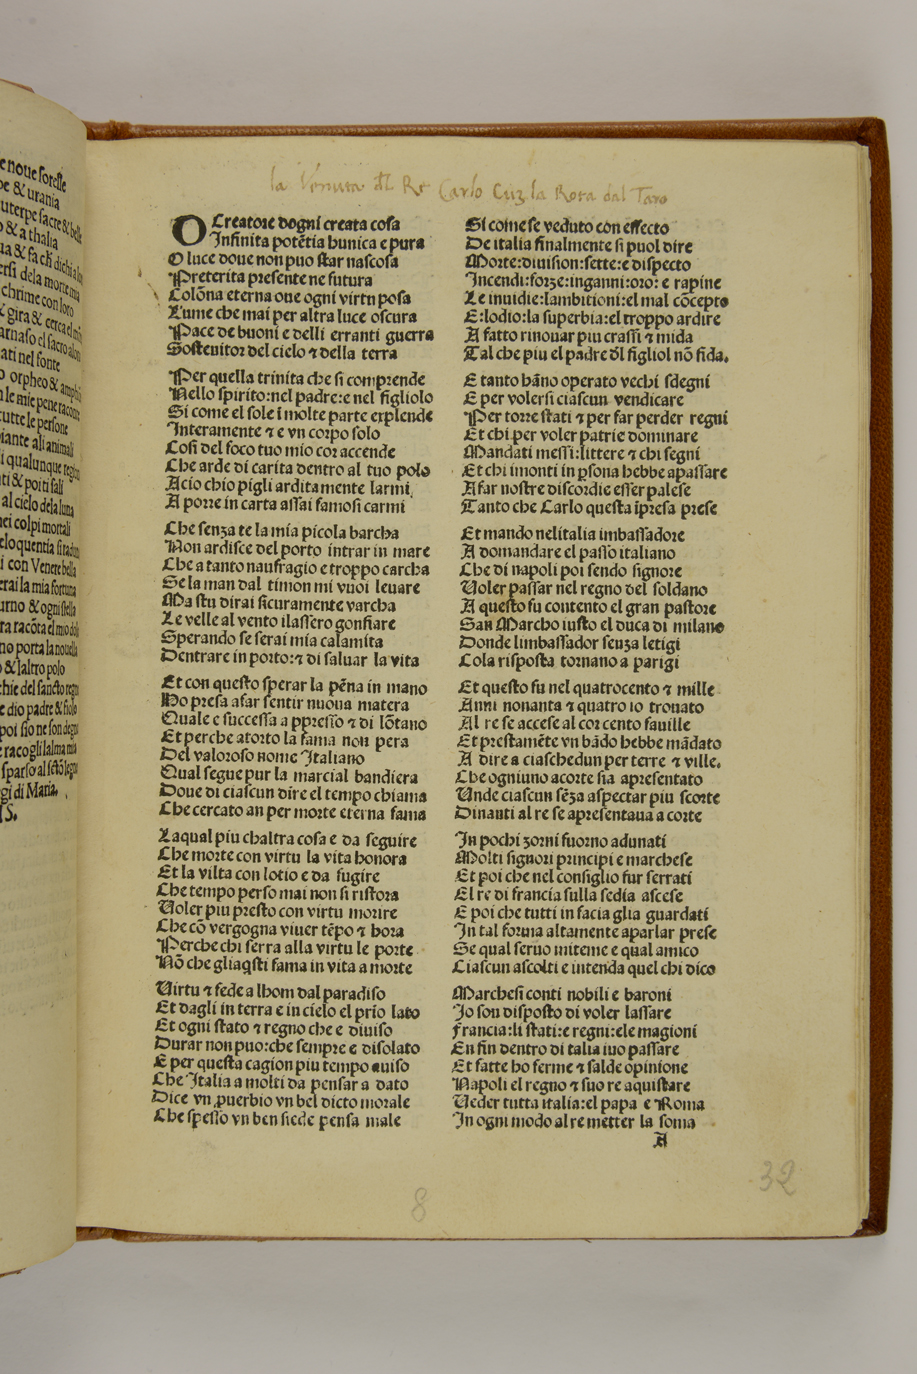 e noue sorelle
pe & urania
uterpe sacre & belle
o & a thalia
ersi dela morte mia
chrime con loro
& gira & cerca el mio
arnaso el sacro alon
ati nel fonte
o orpheo & amphi
le mie pene racone
tutte le persone
iante ali animali
i qualunque region
ti & poi ti sali
al cielo dela luna
ei colpi mortali
eloquentia si tadun
i con Venere bella
erai la mia fortuna
urno & ogni stella
ra racõta el mio dolo
no porta la nouella
o & laltro polo
hie del sancto regno
e dio padre & fiolo
poi sio ne son degno
racogli lalma mia
sparso al sctõ legno
gi di Maria.
IS.
la Venuta dl Re Carlo Cuz la Rota dal Taro
O Creatore dogni creata cosa
Infinita potẽtia bunica e pura
O luce doue non puo star nascosa
Preterita presente ne futura
Colõna eterna oue ogni virtu posa
Lume che mai per altra luce oscura
Pace de buoni e delli erranti guerra
Sostenitor del cielo ⁊ della terra
Per quella trinita che si comprende
Nello spirito:nel padre:e nel figliolo
Si come el sole ĩ molte parte explende
Interamente ⁊ e vn corpo solo
Cosi del foco tuo mio cor accende
Che arde di carita dentro al tuo polo
Acio chio pigli arditamente larmi
A porre in carta assai famosi carmi
Che senza te la mia picola barcha
Non ardisce del porto intrar in mare
Che a tanto naufragio e troppo carcha
Se la man dal timon mi vuoi leuare
Ma stu dirai sicuramente varcha
Le velle al vento ilassero gonfiare
Sperando se serai mia calamita
Dentrare in porto:⁊ di saluar la vita
Et con questo sperar la pẽna in mano
Ho presa afar sentir nuoua matera
Quale e successa a ppresso ⁊ di lõtano
Et perche atorto la fama non pera
Del valoroso nome Italiano
Qual segue pur la marcial bandiera
Doue di ciascun dire el tempo chiama
Che cercato an per morte eterna fama
Laqual piu chaltra cosa e da seguire
Che morte con virtu la vita honora
Et la vilta con lotio e da fugire
Che tempo perso mai non si ristora
Uoler piu presto con virtu morire
Che cõ vergogna viuer tẽpo ⁊ hora
Perche chi serra alla virtu le porte
Nõ che gliaq̃sti fama in vita a morte
Virtu ⁊ fede a lhom dal paradiso
Et dagli in terra e in cielo el prio lato
Et ogni stato ⁊ regno che e diuiso
Durar non puo:che sempre e disolato
E per questa cagion piu tempo auiso
Che Italia a molti da pensar a dato
Dice vn ꝓuerbio vn bel dicto morale
Che spesso vn ben siede pensa male
Si come se veduto con effecto
De italia finalmente si puol dire
Morte:diuision:sette:e dispecto
Incendi:forze:inganni:oro: e rapine
Le inuidie:lambitioni:el mal cõcepto
E:lodio:la superbia:el troppo ardire
A fatto rinouar piu crassi ⁊ mida
Tal che piu el padre dl figliol nõ fida.
E tanto hãno operato vechi sdegni
E per volersi ciascun vendicare
Per torre stati ⁊ per far perder regni
Et chi per voler patrie dominare
Mandati messi:littere ⁊ chi segni
Et chi imonti in ꝑsona hebbe apassare
A far nostre discordie esser palese
Tanto che Carlo questa ĩpresa prese
Et mando nelitalia imbassadore
A domandare el passo italiano
Che di napoli poi sendo signore
Uoler passar nel regno del soldano
A questo fu contento el gran pastore
San Marcho iusto el duca di milano
Donde limbassador senza letigi
Cola risposta tornano a parigi
Et questo fu nel quatrocento ⁊ mille
Anni nonanta ⁊ quatro io trouato
Al re se accese al cor cento fauille
Et prestamẽte vn bãdo hebbe mãdato
A dire a ciaschedun per terre ⁊ ville.
Che ogniuno acorte sia apresentato
Unde ciascun sẽza aspectar piu scorte
Dinanti al re se apresentaua a corte
In pochi zorni fuorno adunati
Molti signori principi e marchese
Et poi che nel consiglio fur serrati
El re di francia sulla sedia ascese
E poi che tutti in facia glia guardati
In tal forma altamente aparlar prese
Se qual seruo miteme e qual amico
Ciascun ascolti e intenda quel chi dico
Marchesi conti nobili e baroni
Io son disposto di voler lassare
Francia:li stati:e regni:ele magioni
En fin dentro di talia iuo passare
Et fatte ho ferme ⁊ salde opinione
Napoli el regno ⁊ suo re aquistare
Ueder tutta italia:el papa e Roma
In ogni modo al re metter la soma
A
8
32